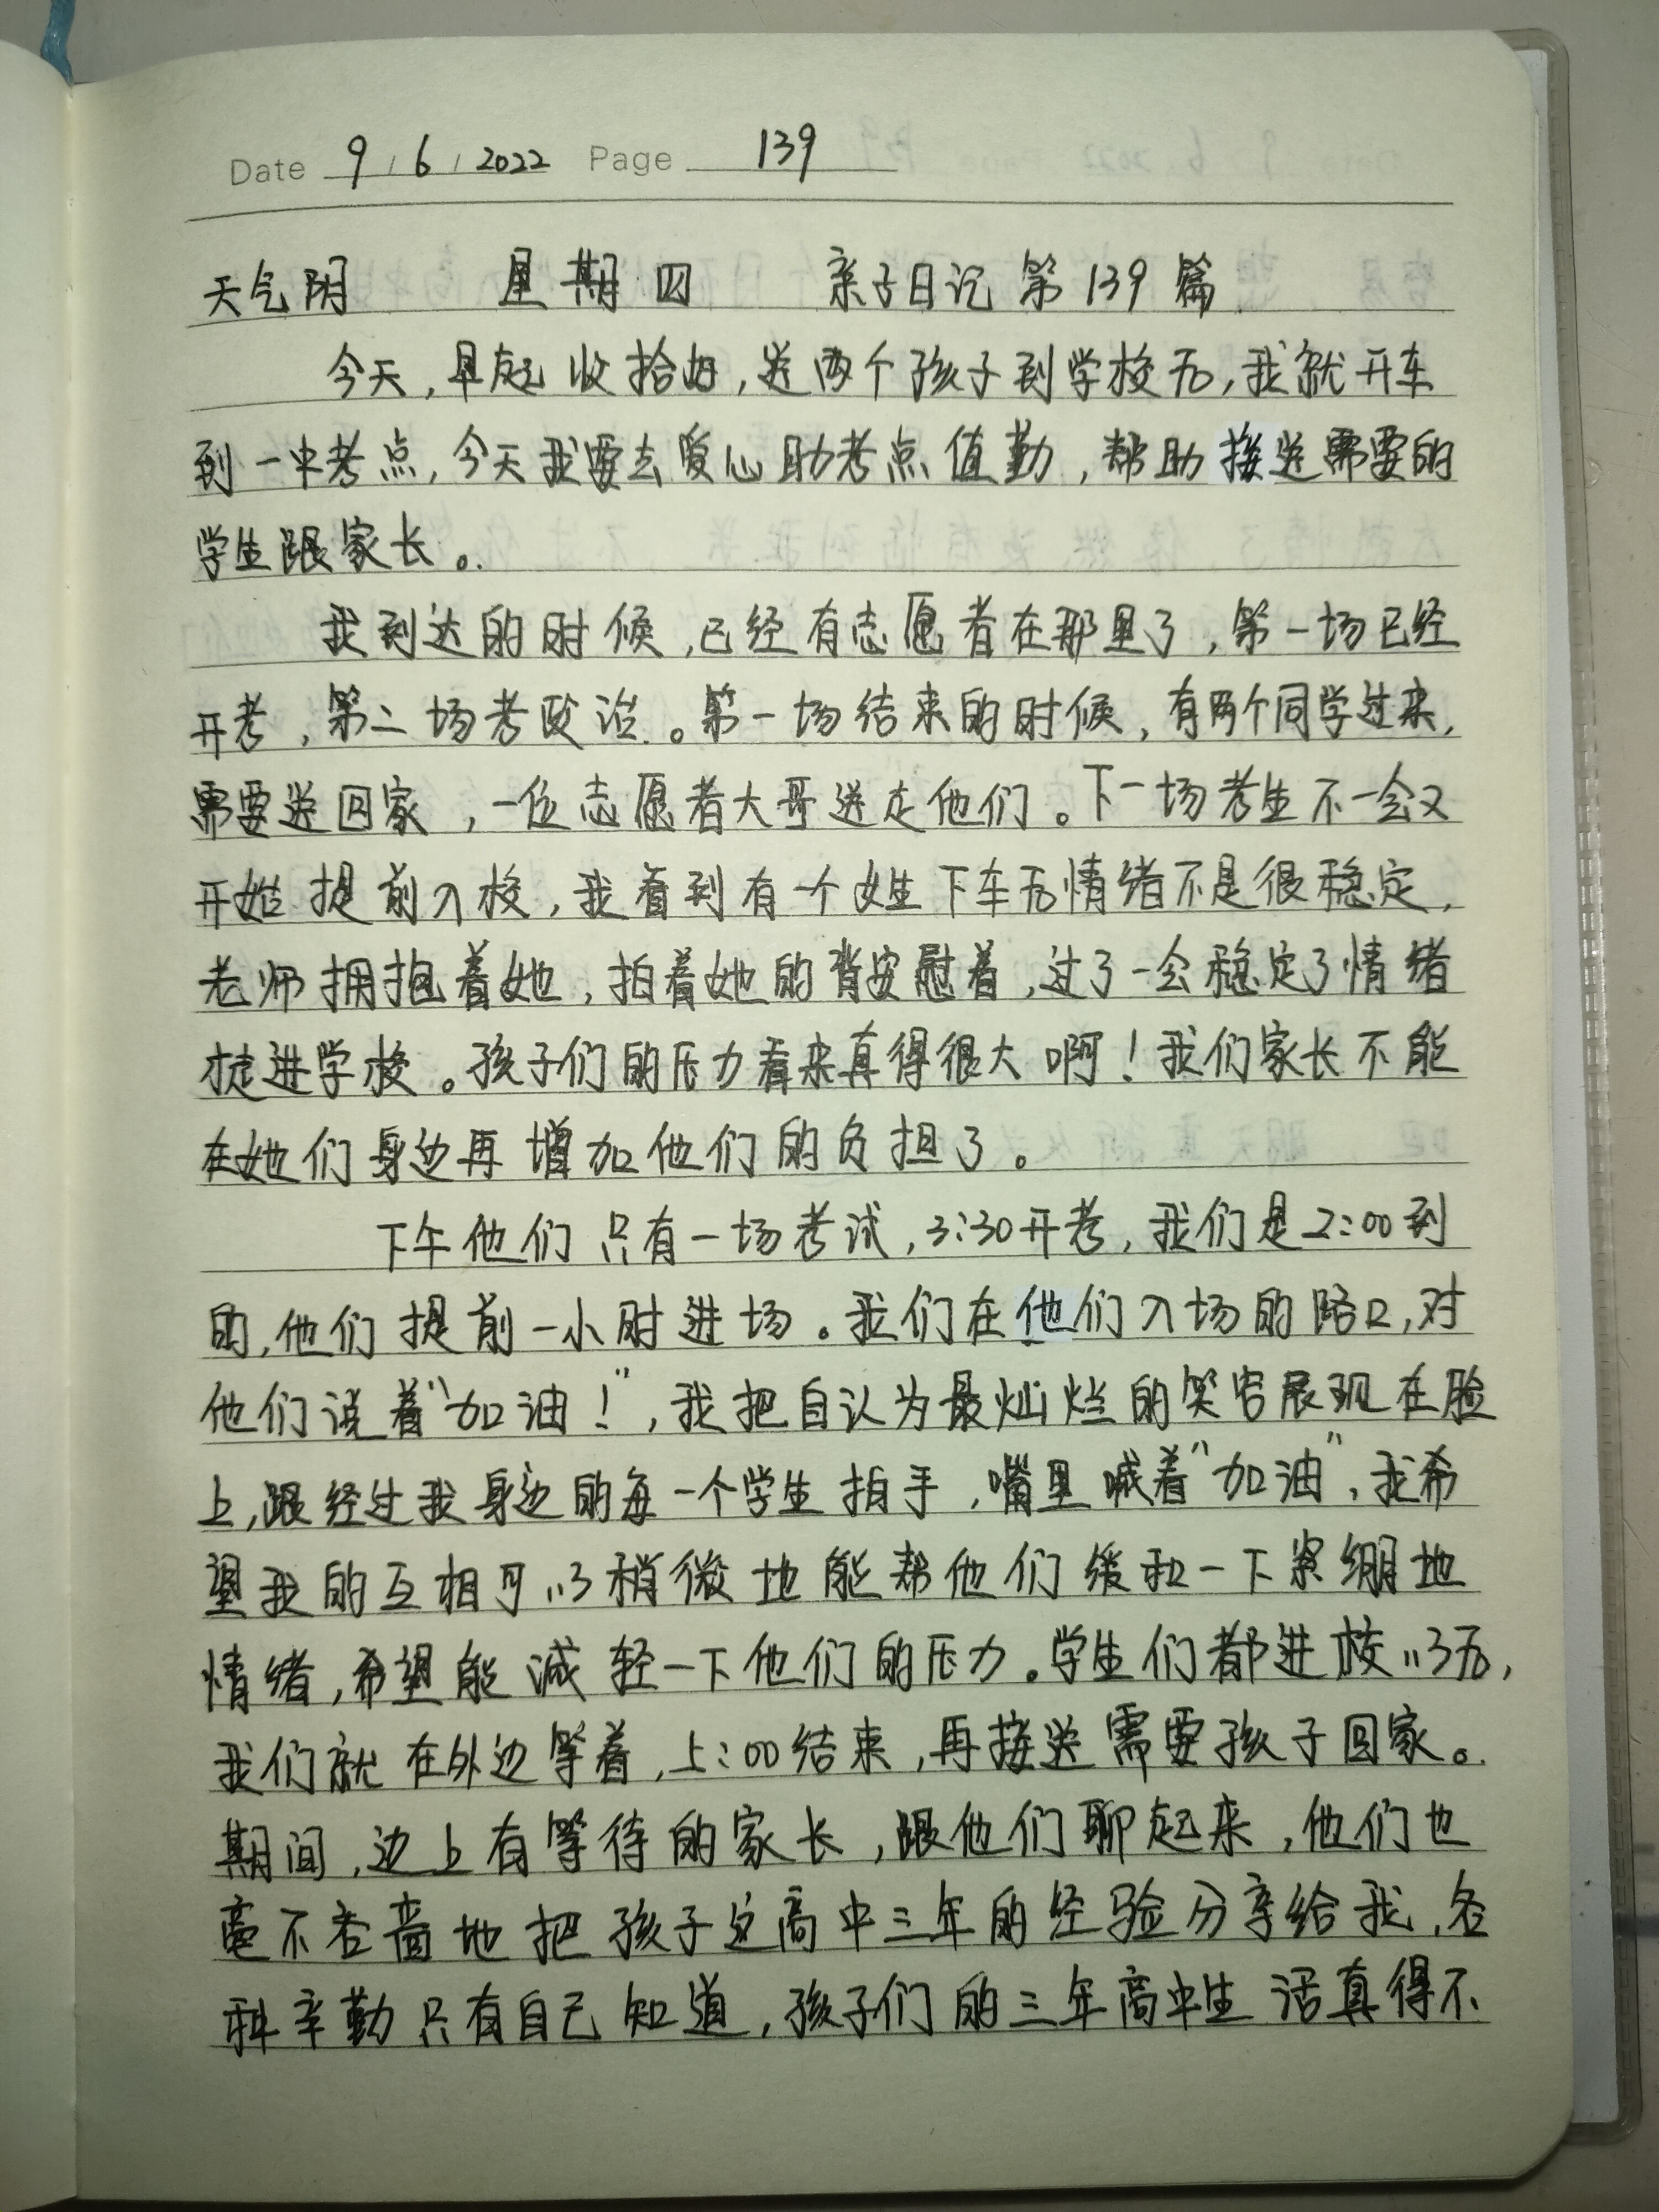 Date 9 / 6 / 2022 Page 139
天气阴 星期四 亲子日记第139篇
今天,早起收拾好,送两个孩子到学校后,我就开车
到一中考点,今天我要去爱心助考点值勤,帮助接送需要的
学生跟家长。
我到达的时候,已经有志愿者在那里了,第一场已经
开考,第二场考政治。第一场结束的时候,有两个同学过来,
需要送回家,一位志愿者大哥送走他们。下一场考生不一会又
开始提前入校,我看到有一个女生下车后情绪不是很稳定,
老师拥抱着她,拍着她的背安慰着,过了一会稳定了情绪
才走进学校。孩子们的压力看来真得很大啊!我们家长不能
在她们身边再增加他们的负担了。
下午他们只有一场考试,3:30开考,我们是2:00到
的,他们提前一小时进场。我们在他们入场的路口,对
他们说着“加油!”,我把自认为最灿烂的笑容展现在脸
上,跟经过我身边的每一个学生拍手,嘴里喊着“加油”,我希
望我的互相可以稍微地能帮他们缓和一下紧绷地
情绪,希望能减轻一下他们的压力。学生们都进校以后,
我们就在外边等着,5:00结束,再接送需要孩子回家。
期间,边上有等待的家长,跟他们聊起来,他们也
毫不吝啬地把孩子这高中三年的经验分享给我,各
种辛勤只有自己知道,孩子们的三年高中生活真得不